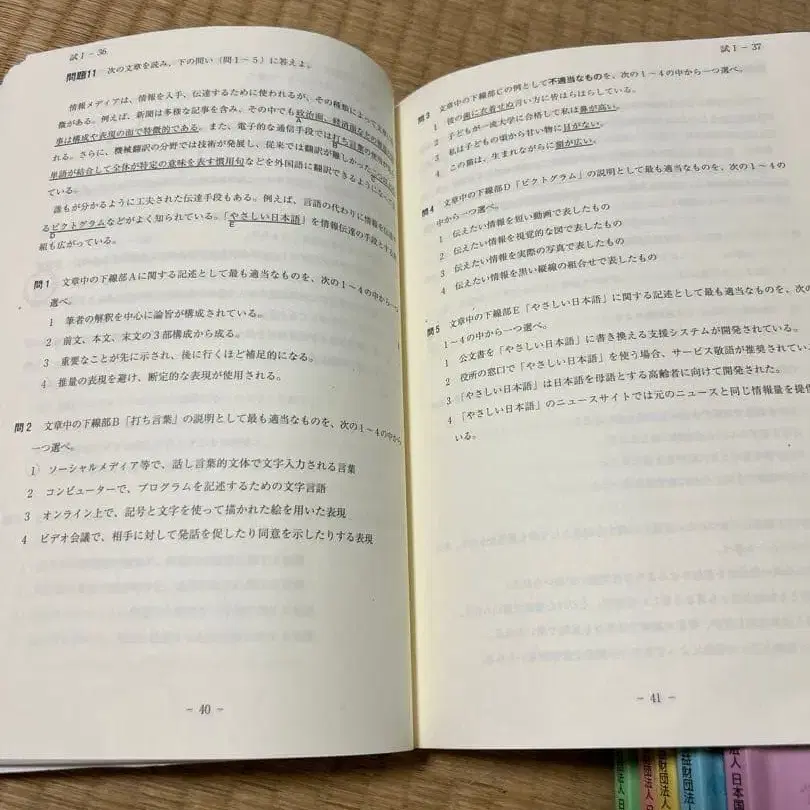 試1-36
問題11 次の文章を読み、下の問い(問1～5)に答えよ。
情報メディアは、情報を入手、伝達するために使われるが、その種類によって文章に
徴がある。例えば、新聞は多様な記事を含み、その中でも政治面、経済面などの
事は構成や表現の面で特徴的である。また、電子的な通信手段では打ち言葉の使用が
れる。さらに、機械翻訳の分野では技術が発展し、従来では翻訳が難しかった
単語が結合して全体が特定の意味を表す慣用句などを外国語に翻訳できるようになって
ている。
誰もが分かるように工夫された伝達手段もある。例えば、言語の代わりに情報を
るピクトグラムなどがよく知られている。「やさしい日本語」を情報伝達の手段とする
組も広がっている。
A
B
C
D
E
問1 文章中の下線部Aに関する記述として最も適当なものを、次の1～4の中から一つ
選べ。
1 筆者の解釈を中心に論旨が構成されている。
2 前文、本文、末文の3部構成から成る。
3 重要なことが先に示され、後に行くほど補足的になる。
4 推量の表現を避け、断定的な表現が使用される。
問2 文章中の下線部B「打ち言葉」の説明として最も適当なものを、次の1～4の中から
一つ選べ。
1 ソーシャルメディア等で、話し言葉的文体で文字入力される言葉
2 コンピューターで、プログラムを記述するための文字言語
3 オンライン上で、記号と文字を使って描かれた絵を用いた表現
4 ビデオ会議で、相手に対して発話を促したり同意を示したりする表現
- 40 -
試1-37
問3 文章中の下線部Cの例として不適当なものを、次の1～4の中から一つ選べ。
1 彼の歯に衣着せぬ言い方に皆はらはらしている。
2 子どもが一流大学に合格して私は鼻が高い。
3 私は子どもの頃から甘い物に目がない。
4 この猫は、生まれながらに額が広い。
問4 文章中の下線部D「ピクトグラム」の説明として最も適当なものを、次の1～4の
中から一つ選べ。
1 伝えたい情報を短い動画で表したもの
2 伝えたい情報を視覚的な図で表したもの
3 伝えたい情報を実際の写真で表したもの
4 伝えたい情報を黒い縦線の組合せで表したもの
問5 文章中の下線部E「やさしい日本語」に関する記述として最も適当なものを、次の
1～4の中から一つ選べ。
1 公文書を「やさしい日本語」に書き換える支援システムが開発されている。
2 役所の窓口で「やさしい日本語」を使う場合、サービス敬語が推奨されてい
3 「やさしい日本語」は日本語を母語とする高齢者に向けて開発された。
4 「やさしい日本語」のニュースサイトでは元のニュースと同じ情報量を提供
いる。
- 41 -
財団法人
益財団法人
益財団法人
財団法人
法人 日本国